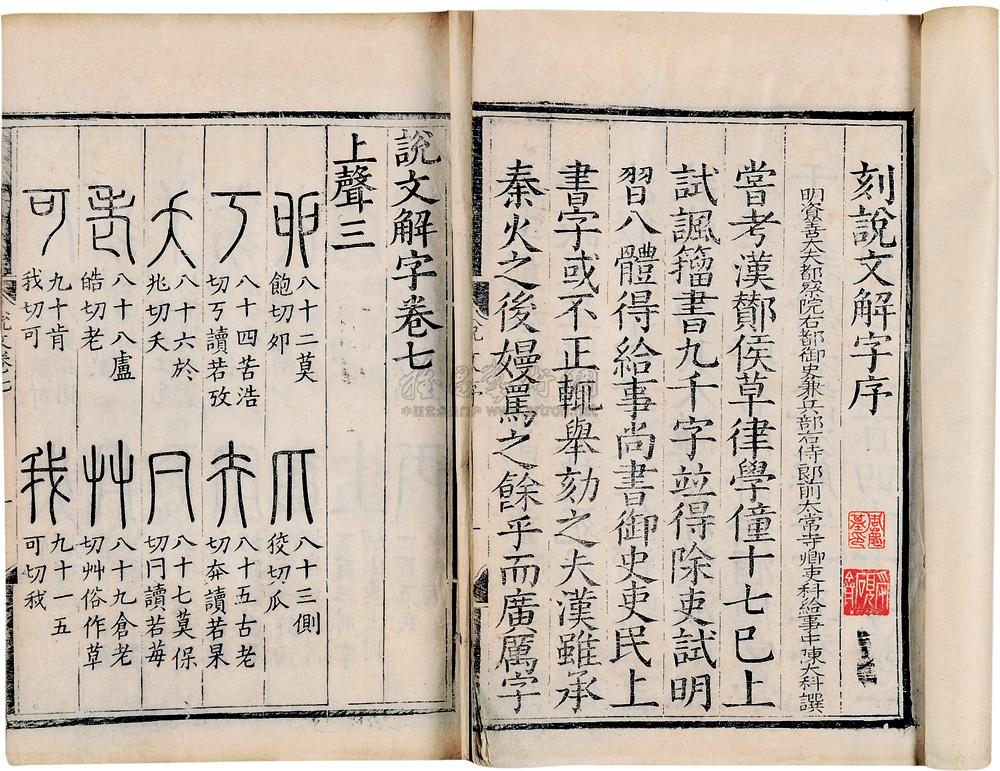 刻說文解字序
明資善大夫都察院右都御史兼兵部右侍郎前太常寺卿吏科給事中陳大科譔
嘗考漢酇侯草律學僮十七巳上
試諷籀書九千字並得除吏試明
習八體得給事尚書御史吏民上
書字或不正輒舉劾之夫漢雖承
秦火之後嫚罵之餘乎而廣厲字
說文解字卷七
上聲三
丣 八十二莫
飽切夘
爪 八十三側
狡切瓜
丂 八十四苦浩
切丂讀若攷
夰 八十五古老
切夰讀若杲
夭 八十六於
兆切夭
冃 八十七莫保
切冃讀若莓
老 八十八盧
皓切老
艸 八十九倉老
切艸俗作草
可 九十肯
我切可
我 九十一五
可切我